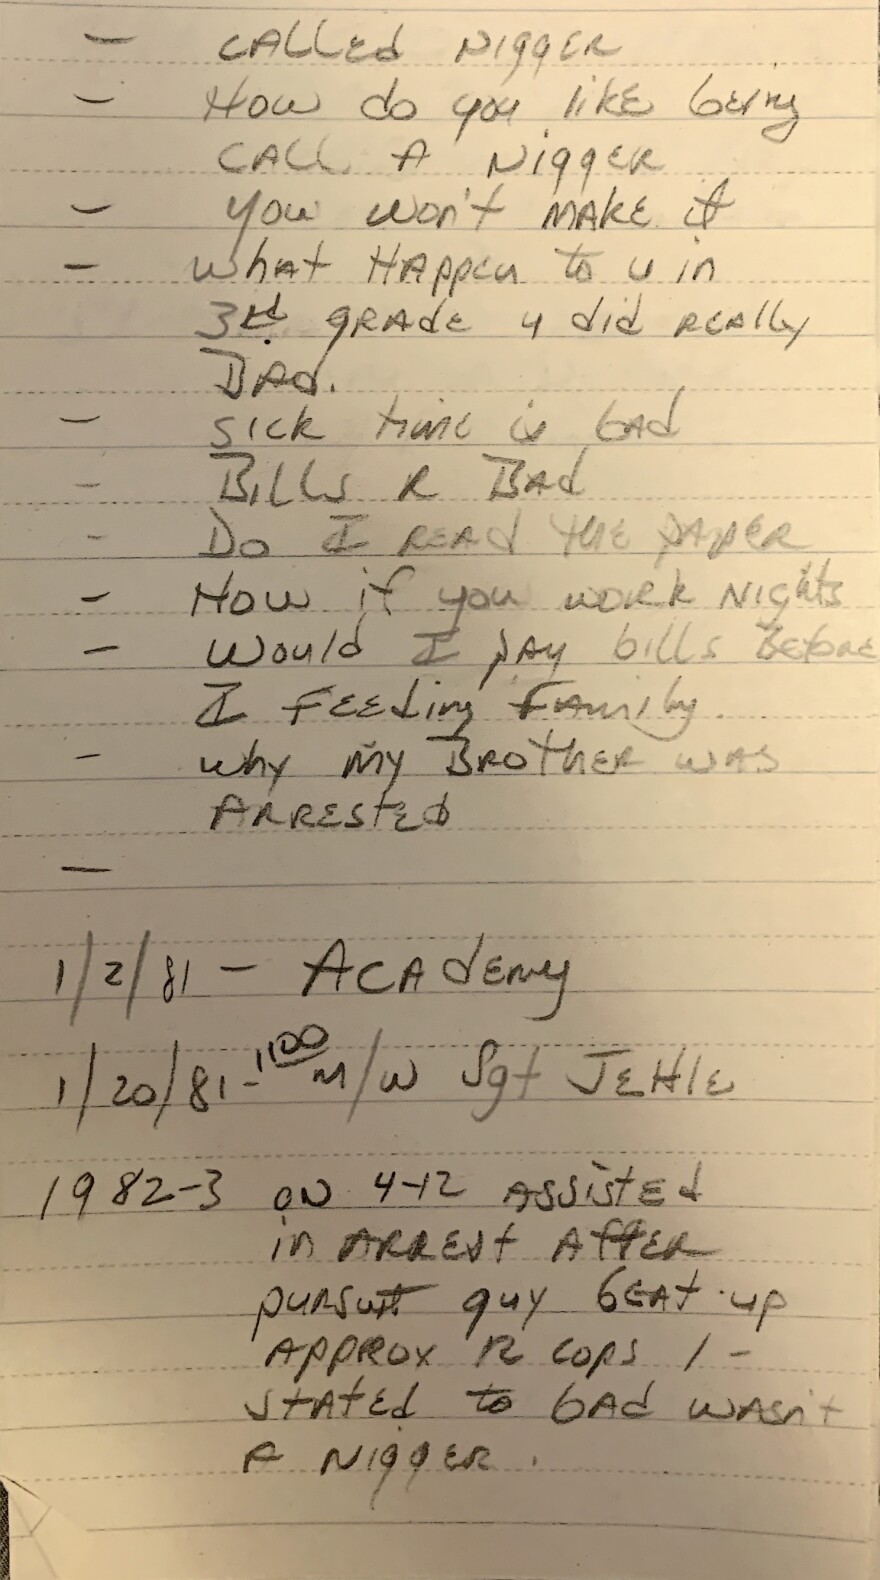 - CALLEd NiggER
- How do you likE being
CALL A NiggER
- you won't MAKE it
- what HAppen to u in
3rd gRAdE u did REAlly
BAd.
- sick time is bAd
- Bills R BAd
- Do I REAd the pApER
- How if you woRk Nights
- Would I pAy bills BEfoRE
I FEEding FAmily.
- why My BRotHER wAS
ARRESTEd
-
1/2/81 - ACAdEmy
1/20/81 - 1100 m/w Sgt JEHlE
1982-3 ON 4-12 ASSistEd
in ARREst AftER
puRsuit guy bEAt up
AppRox 12 cops 1 -
stAtEd to bAd wAsn't
A NiggER.